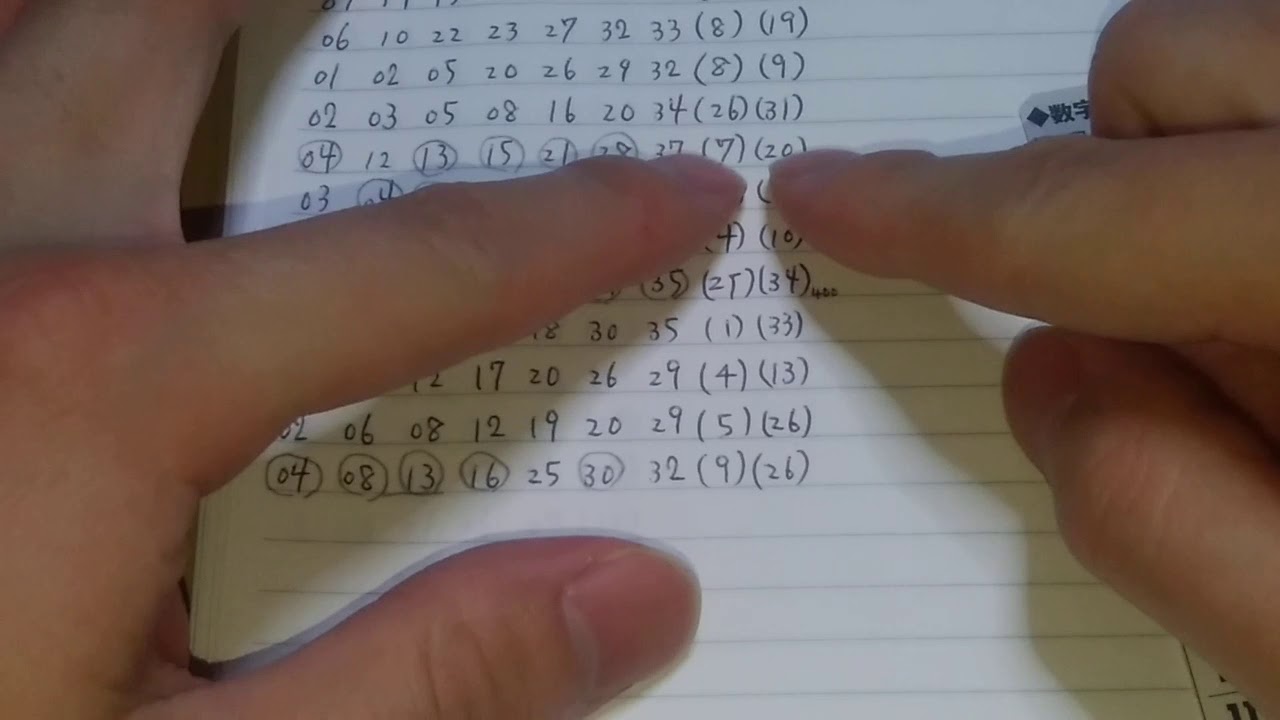 06 10 22 23 27 32 33 (8) (19)
01 02 05 20 26 29 32 (8) (9)
02 03 05 08 16 20 34 (26) (31)
◆数字
04 12 13 15 21 28 37 (7) (20)
03 04
(4) (10)
35 (25) (34) 400
18 30 35 (1) (33)
12 17 20 26 29 (4) (13)
02 06 08 12 19 20 29 (5) (26)
04 08 13 16 25 30 32 (9) (26)